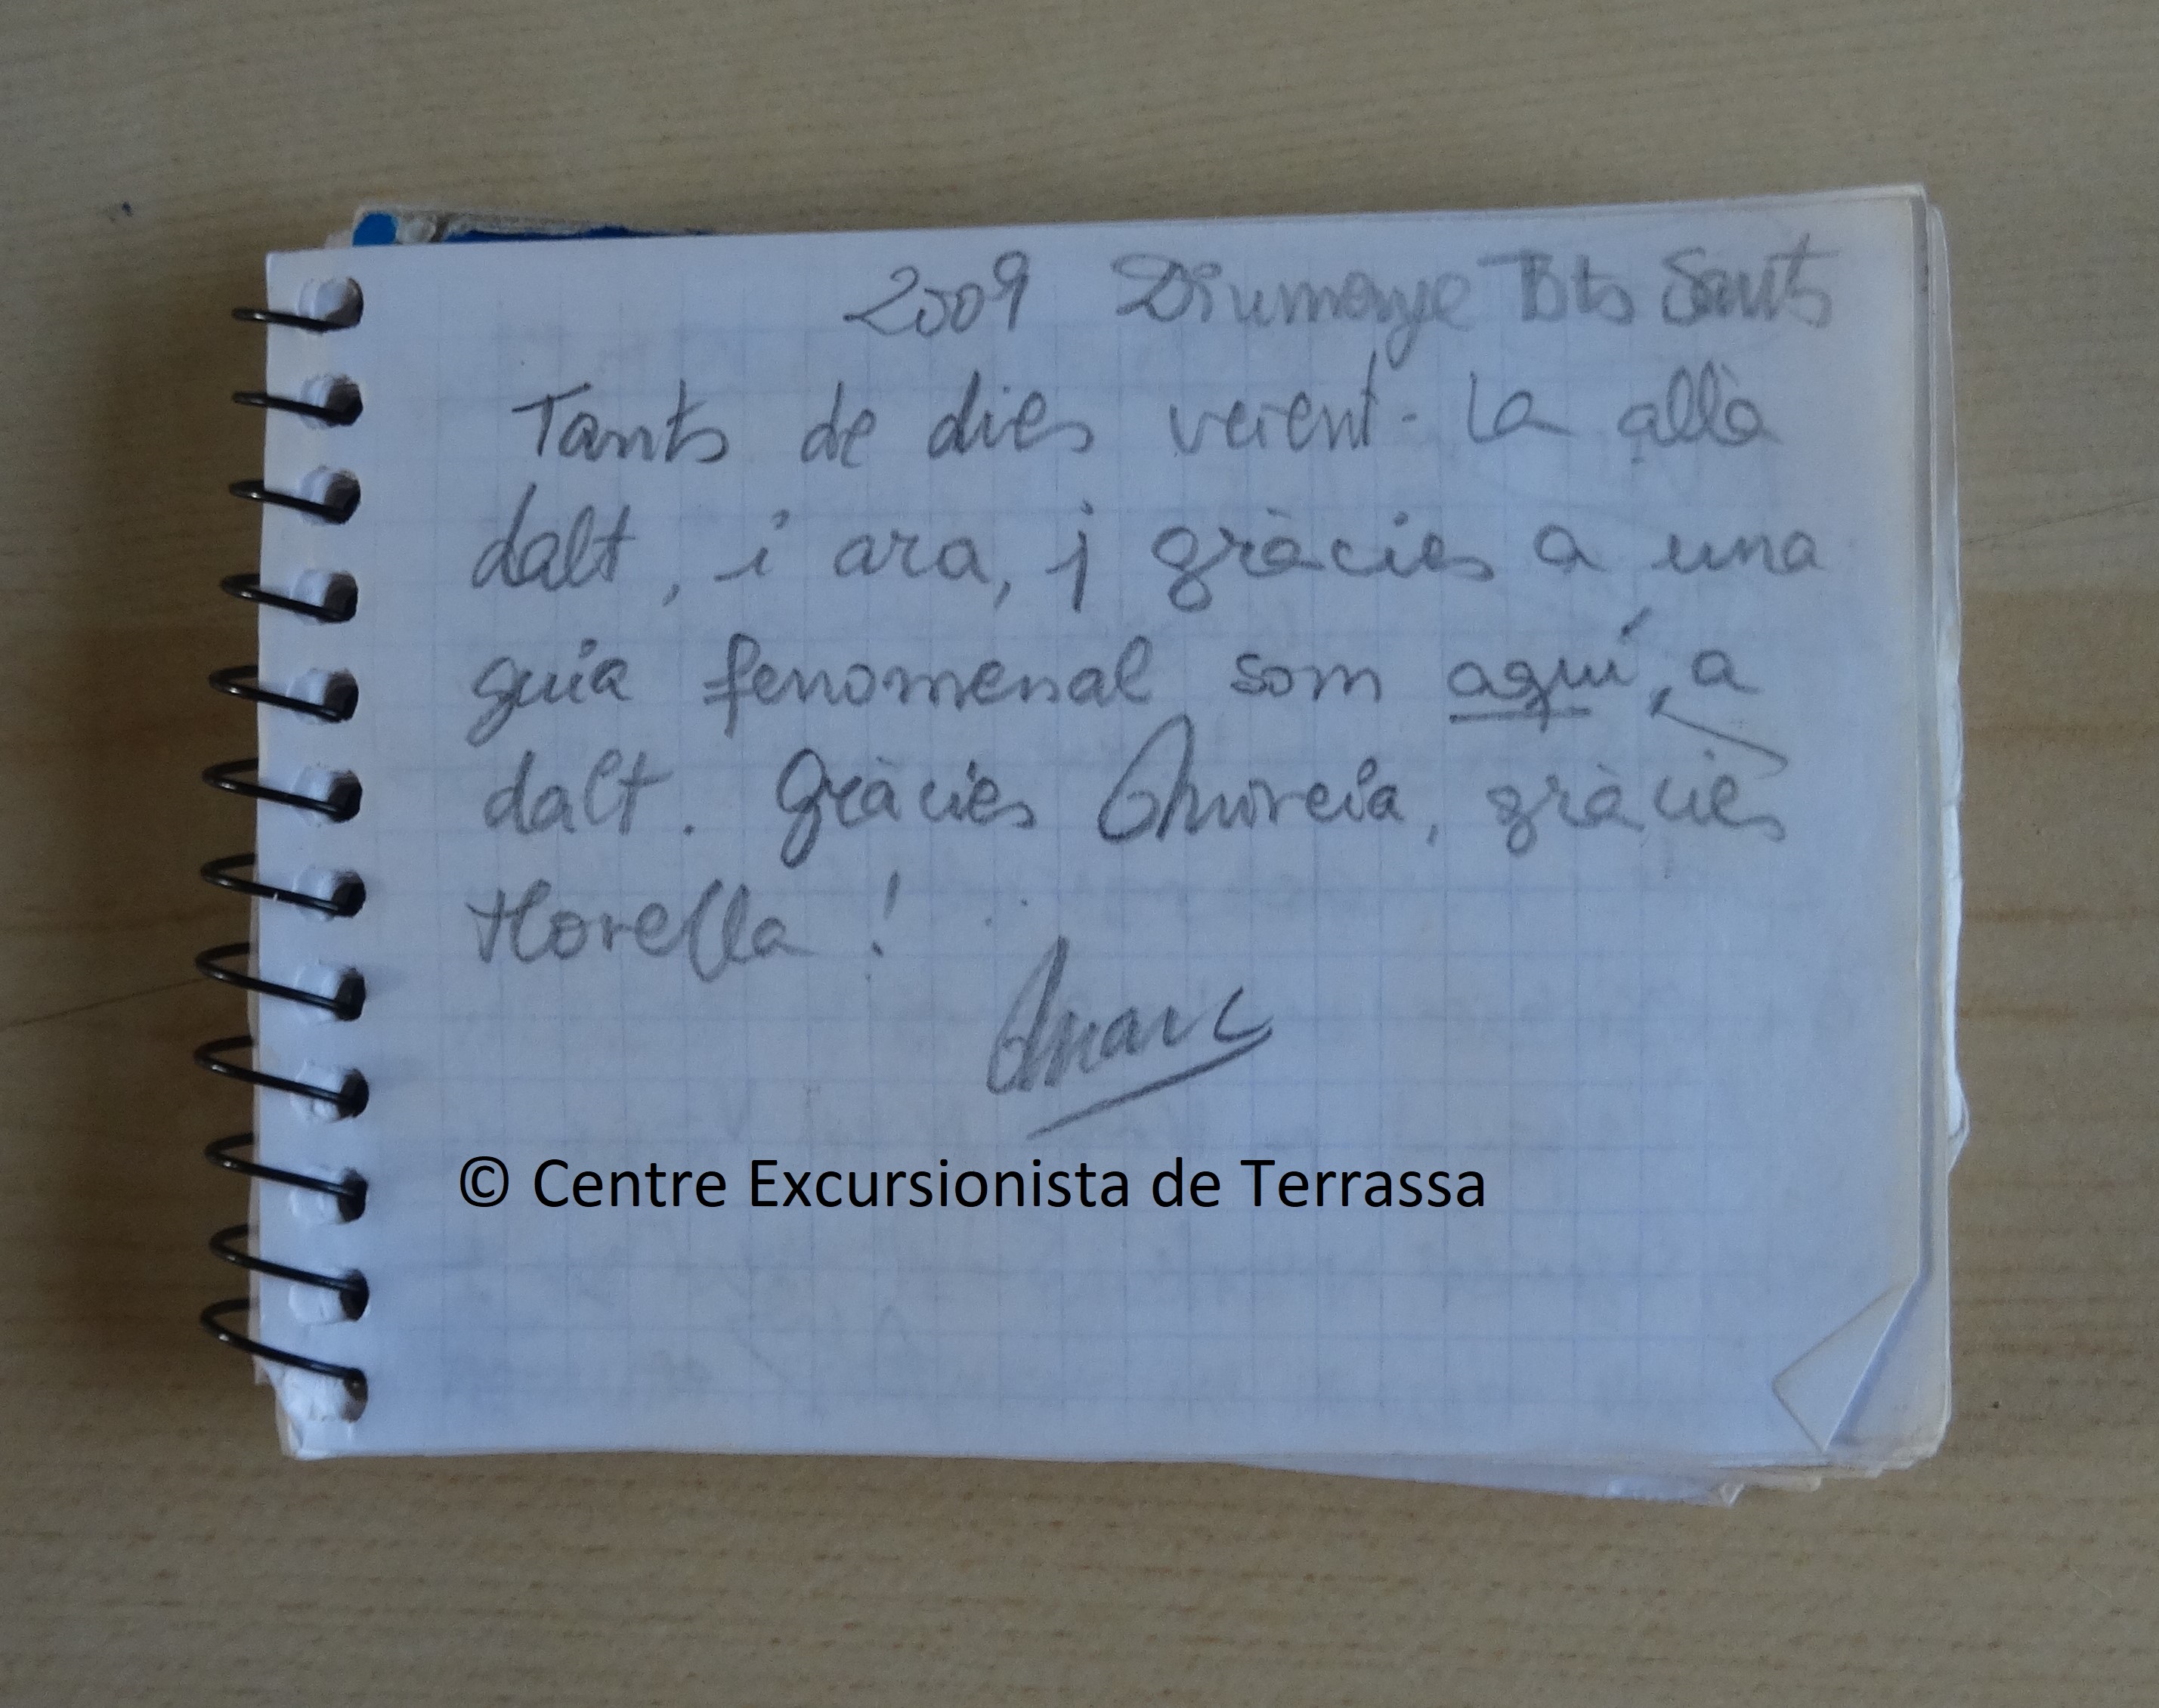 2009 Diumenge Tots Sants
Tants de dies veient-la allà
dalt, i ara, i gràcies a una
guia fenomenal som aquí, a
dalt. Gràcies Múrcia, gràcies
Morella!
Marc
© Centre Excursionista de Terrassa